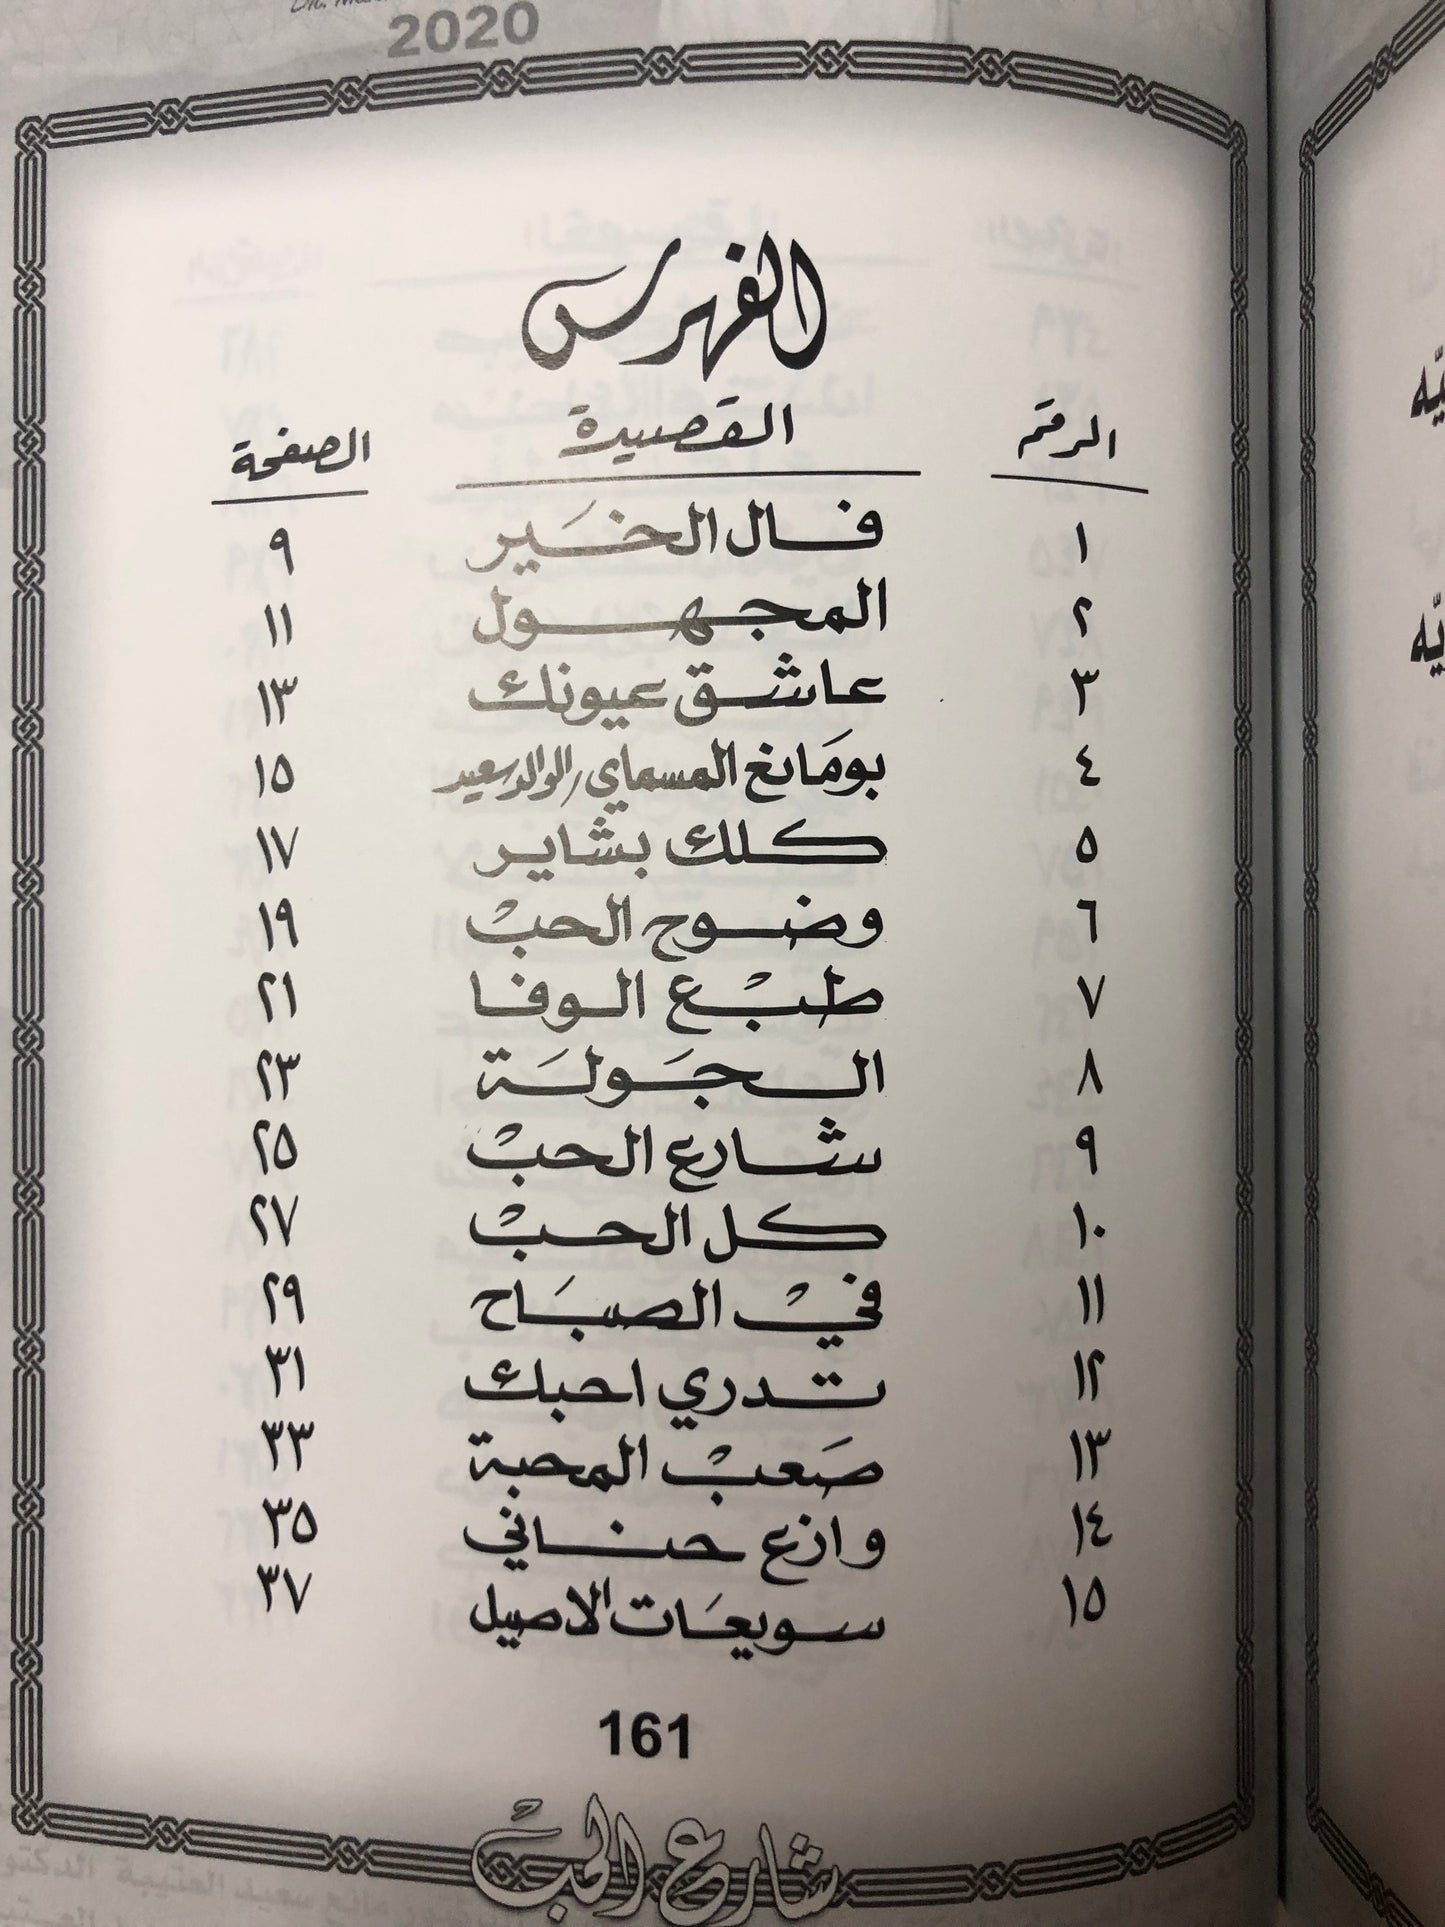 2020
الفهرس
الرقم القصيدة الصفحة
١ فال الخَير ٩
٢ المجهول ١١
٣ عاشق عيونك ١٣
٤ بومَانع المسماي / الوالد سعيد ١٥
٥ كلك بشاير ١٧
٦ وضوح الحبْ ١٩
٧ طبْع الوفا ٢١
٨ الجَولَة ٢٣
٩ شارع الحبْ ٢٥
١٠ كل الحبْ ٢٧
١١ فيْ الصبَاح ٢٩
١٢ تدري احبك ٣١
١٣ صَعبْ المحبة ٣٣
١٤ وازع حناني ٣٥
١٥ سويعَات الاصيل ٣٧
161
شارع الحبّ